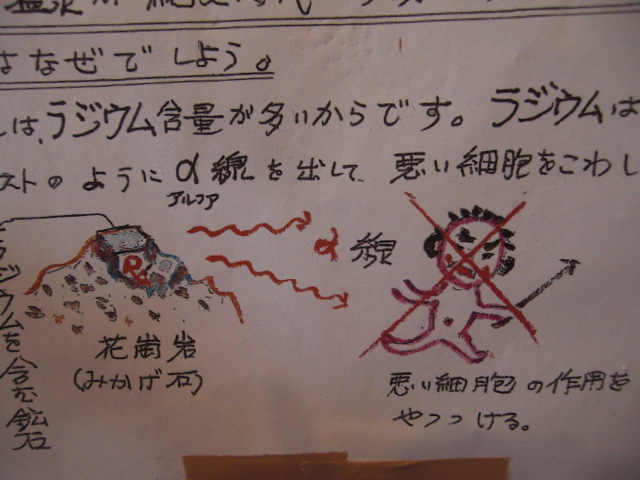 はなぜでしよう。
は、ラジウム含量が多いからです。ラジウムは
ストのようにα線を出して、悪い細胞をこわし
アルファ
ラジウムを含む鉱石
Ra
α線
花崗岩
(みかげ石)
悪い細胞の作用を
やっつける。